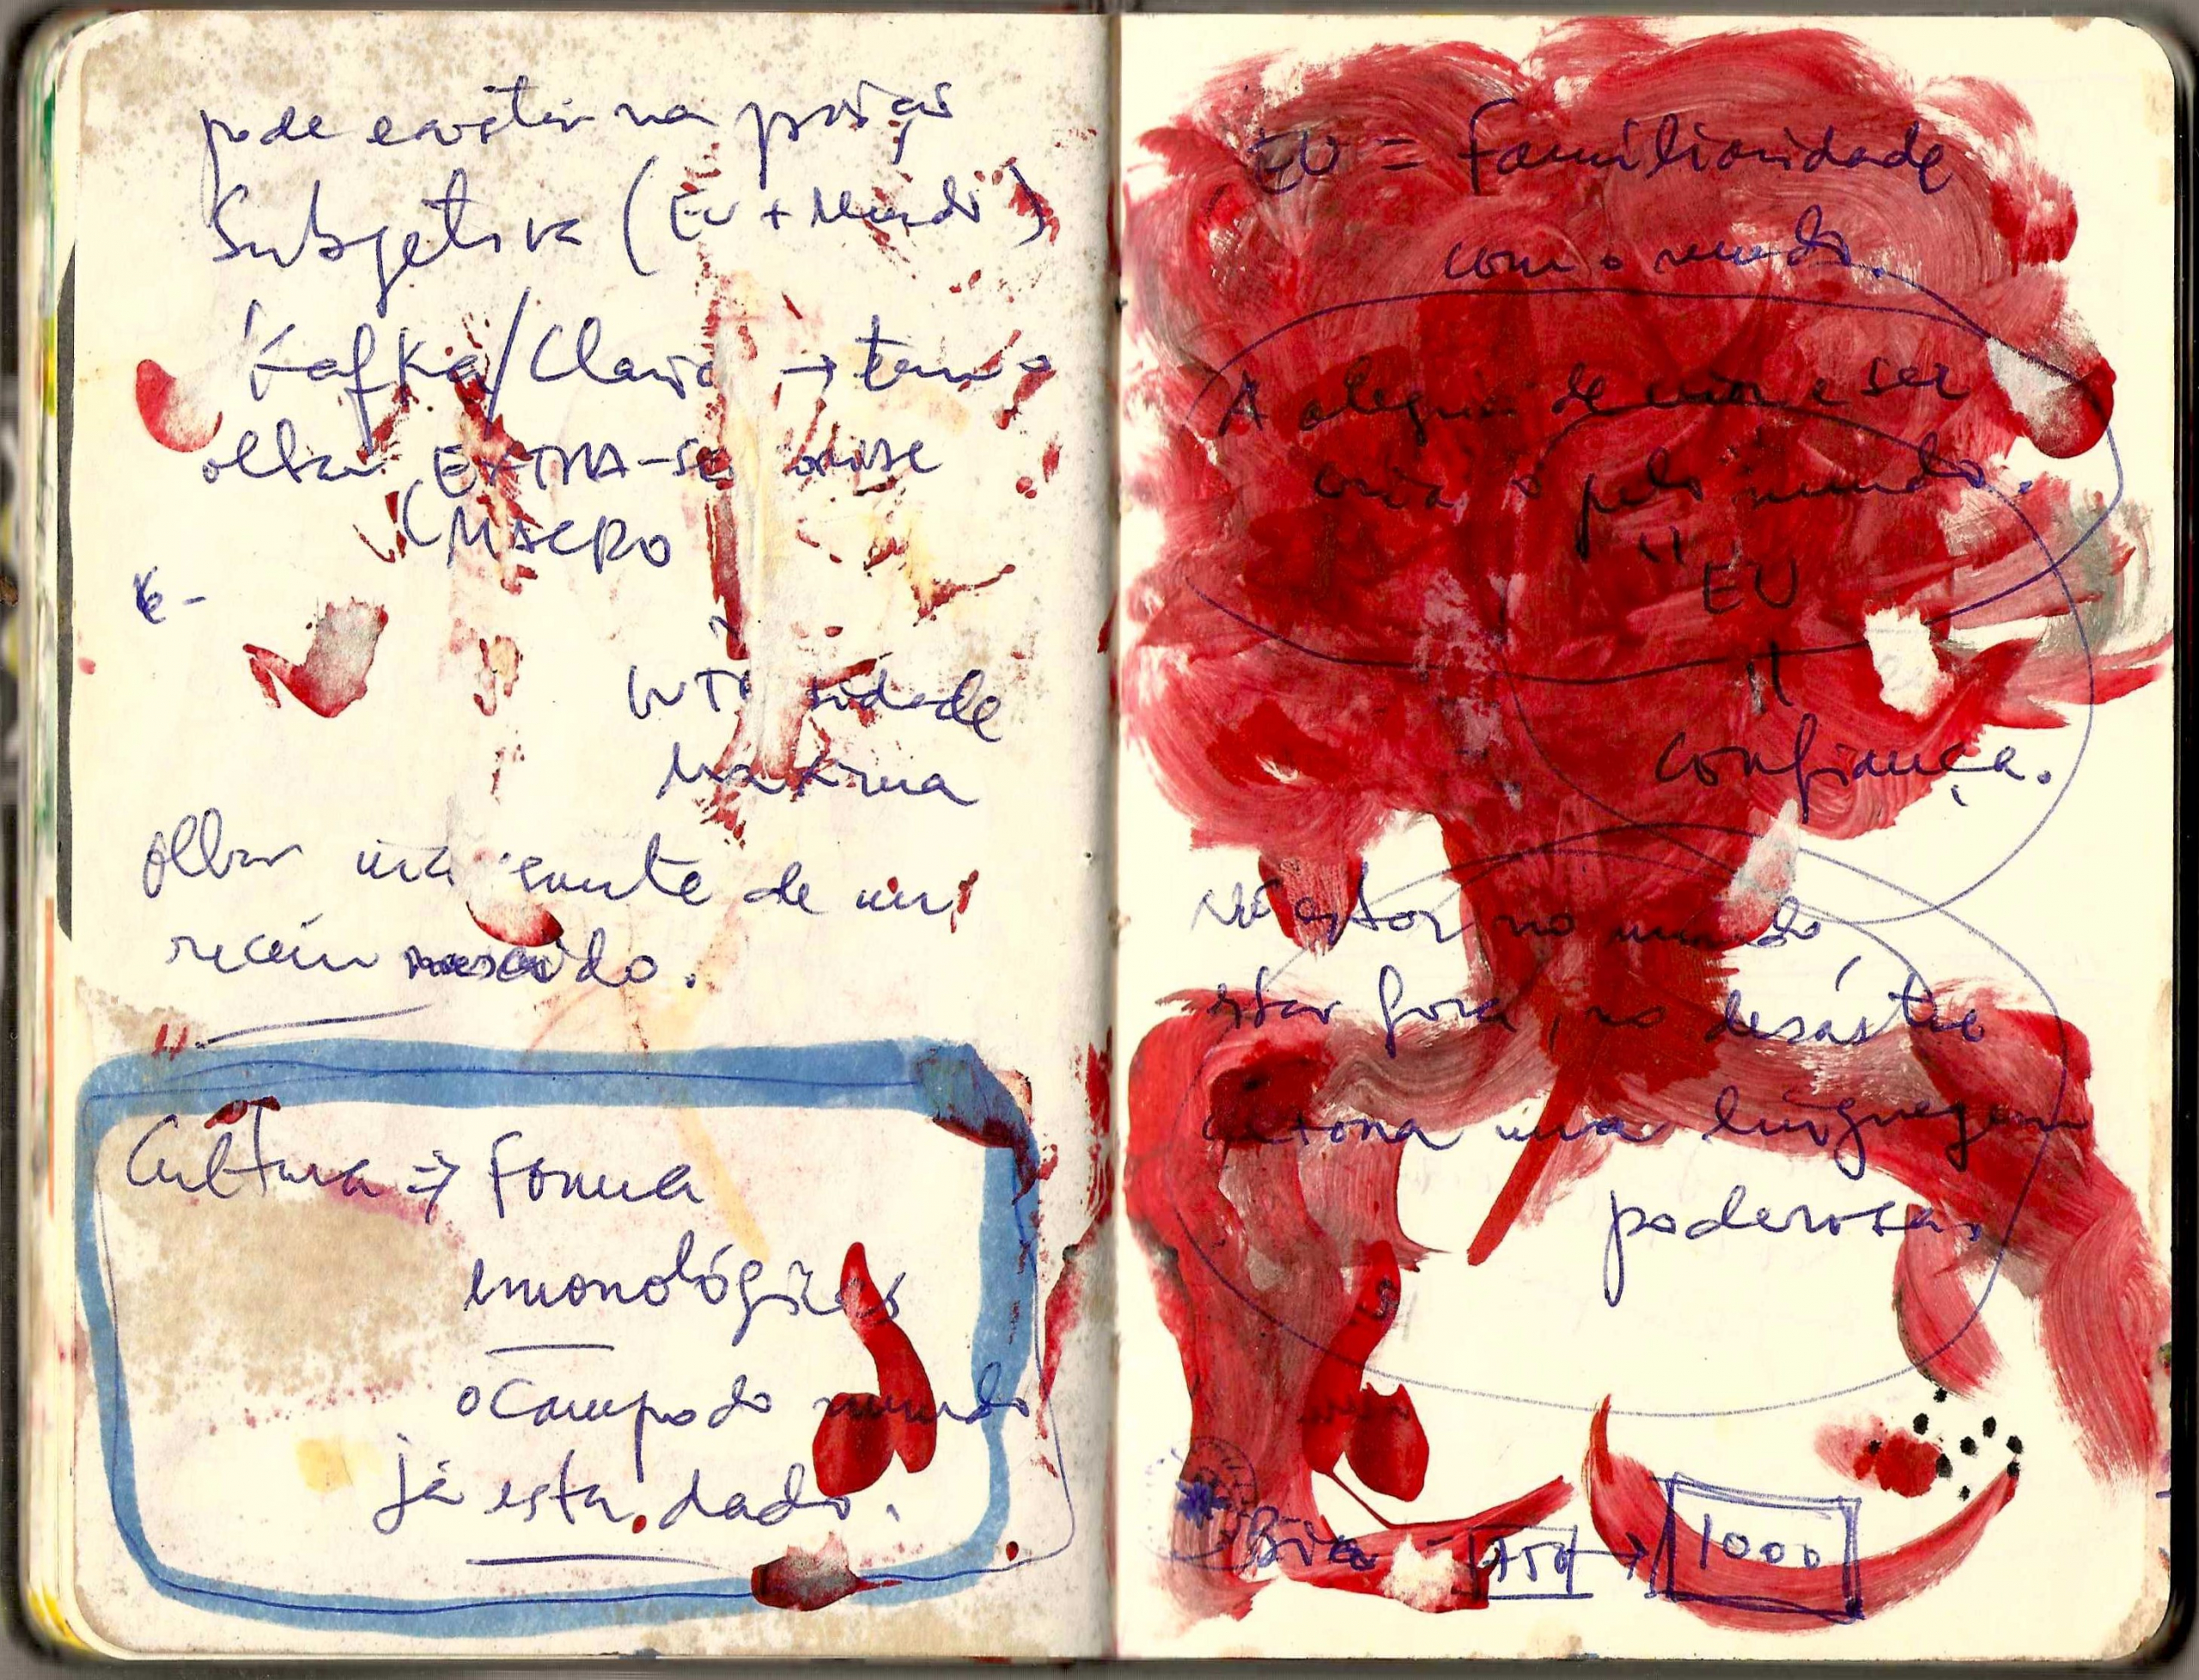 pode existir na posição
Subjetiva (Eu + Mundo)
Kafka/Clarice → tem o
olhar EXTRA-SE
(MACRO
maxima
olhar de um
recém nascido.
Cultura → forma
monológica
o campo do mundo
já está dado.
EU = familiaridade
com o mundo.
A alegria de criar e ser
criado pelo mundo.
"
EU
"
confiança.
Não estar no mundo
estar fora, no desástre
detona uma linguagem
poderosa.
Bia 750 → 1000